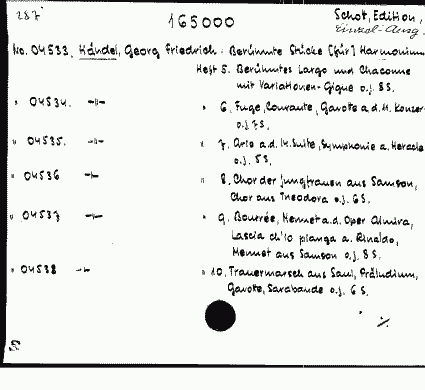 287
165000
Schot, Edition,
Einzel-Ausg.
No. 04533. Händel, Georg Friedrich: Berühmte Stücke [für] Harmonium
Heft 5. Berühmtes Largo und Chaconne
mit Variationen-Gigue o.J. 8 S.
" 04534. -"- " 6. Fuge, Courante, Gavotte a.d.14. Konzer-
o.J. 7 S.
" 04535. -"- " 7. Aria a.d. 14. Suite, Symphonie a. Heracle
o.J. 5 S.
" 04536 -"- " 8. Chor der Jungfrauen aus Samson,
Chor aus Theodora o.J. 6 S.
" 04537 -"- " 9. Bourrée, Menuet a.d. Oper Almira,
Lascia ch'io pianga a. Rinaldo,
Menuet aus Samson o.J. 8 S.
" 04538 -"- " 10. Trauermarsch aus Saul, Präludium,
Gavotte, Sarabande o.J. 6 S.